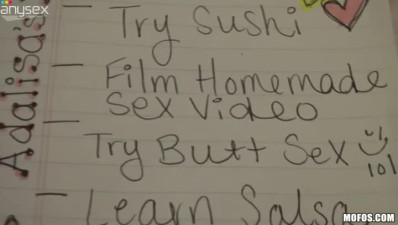 anysex
Adalisa's
- Try Sushi
- Film Homemade
Sex Video
- Try Butt Sex
lol
- Learn Salsa
MOFOS.COM